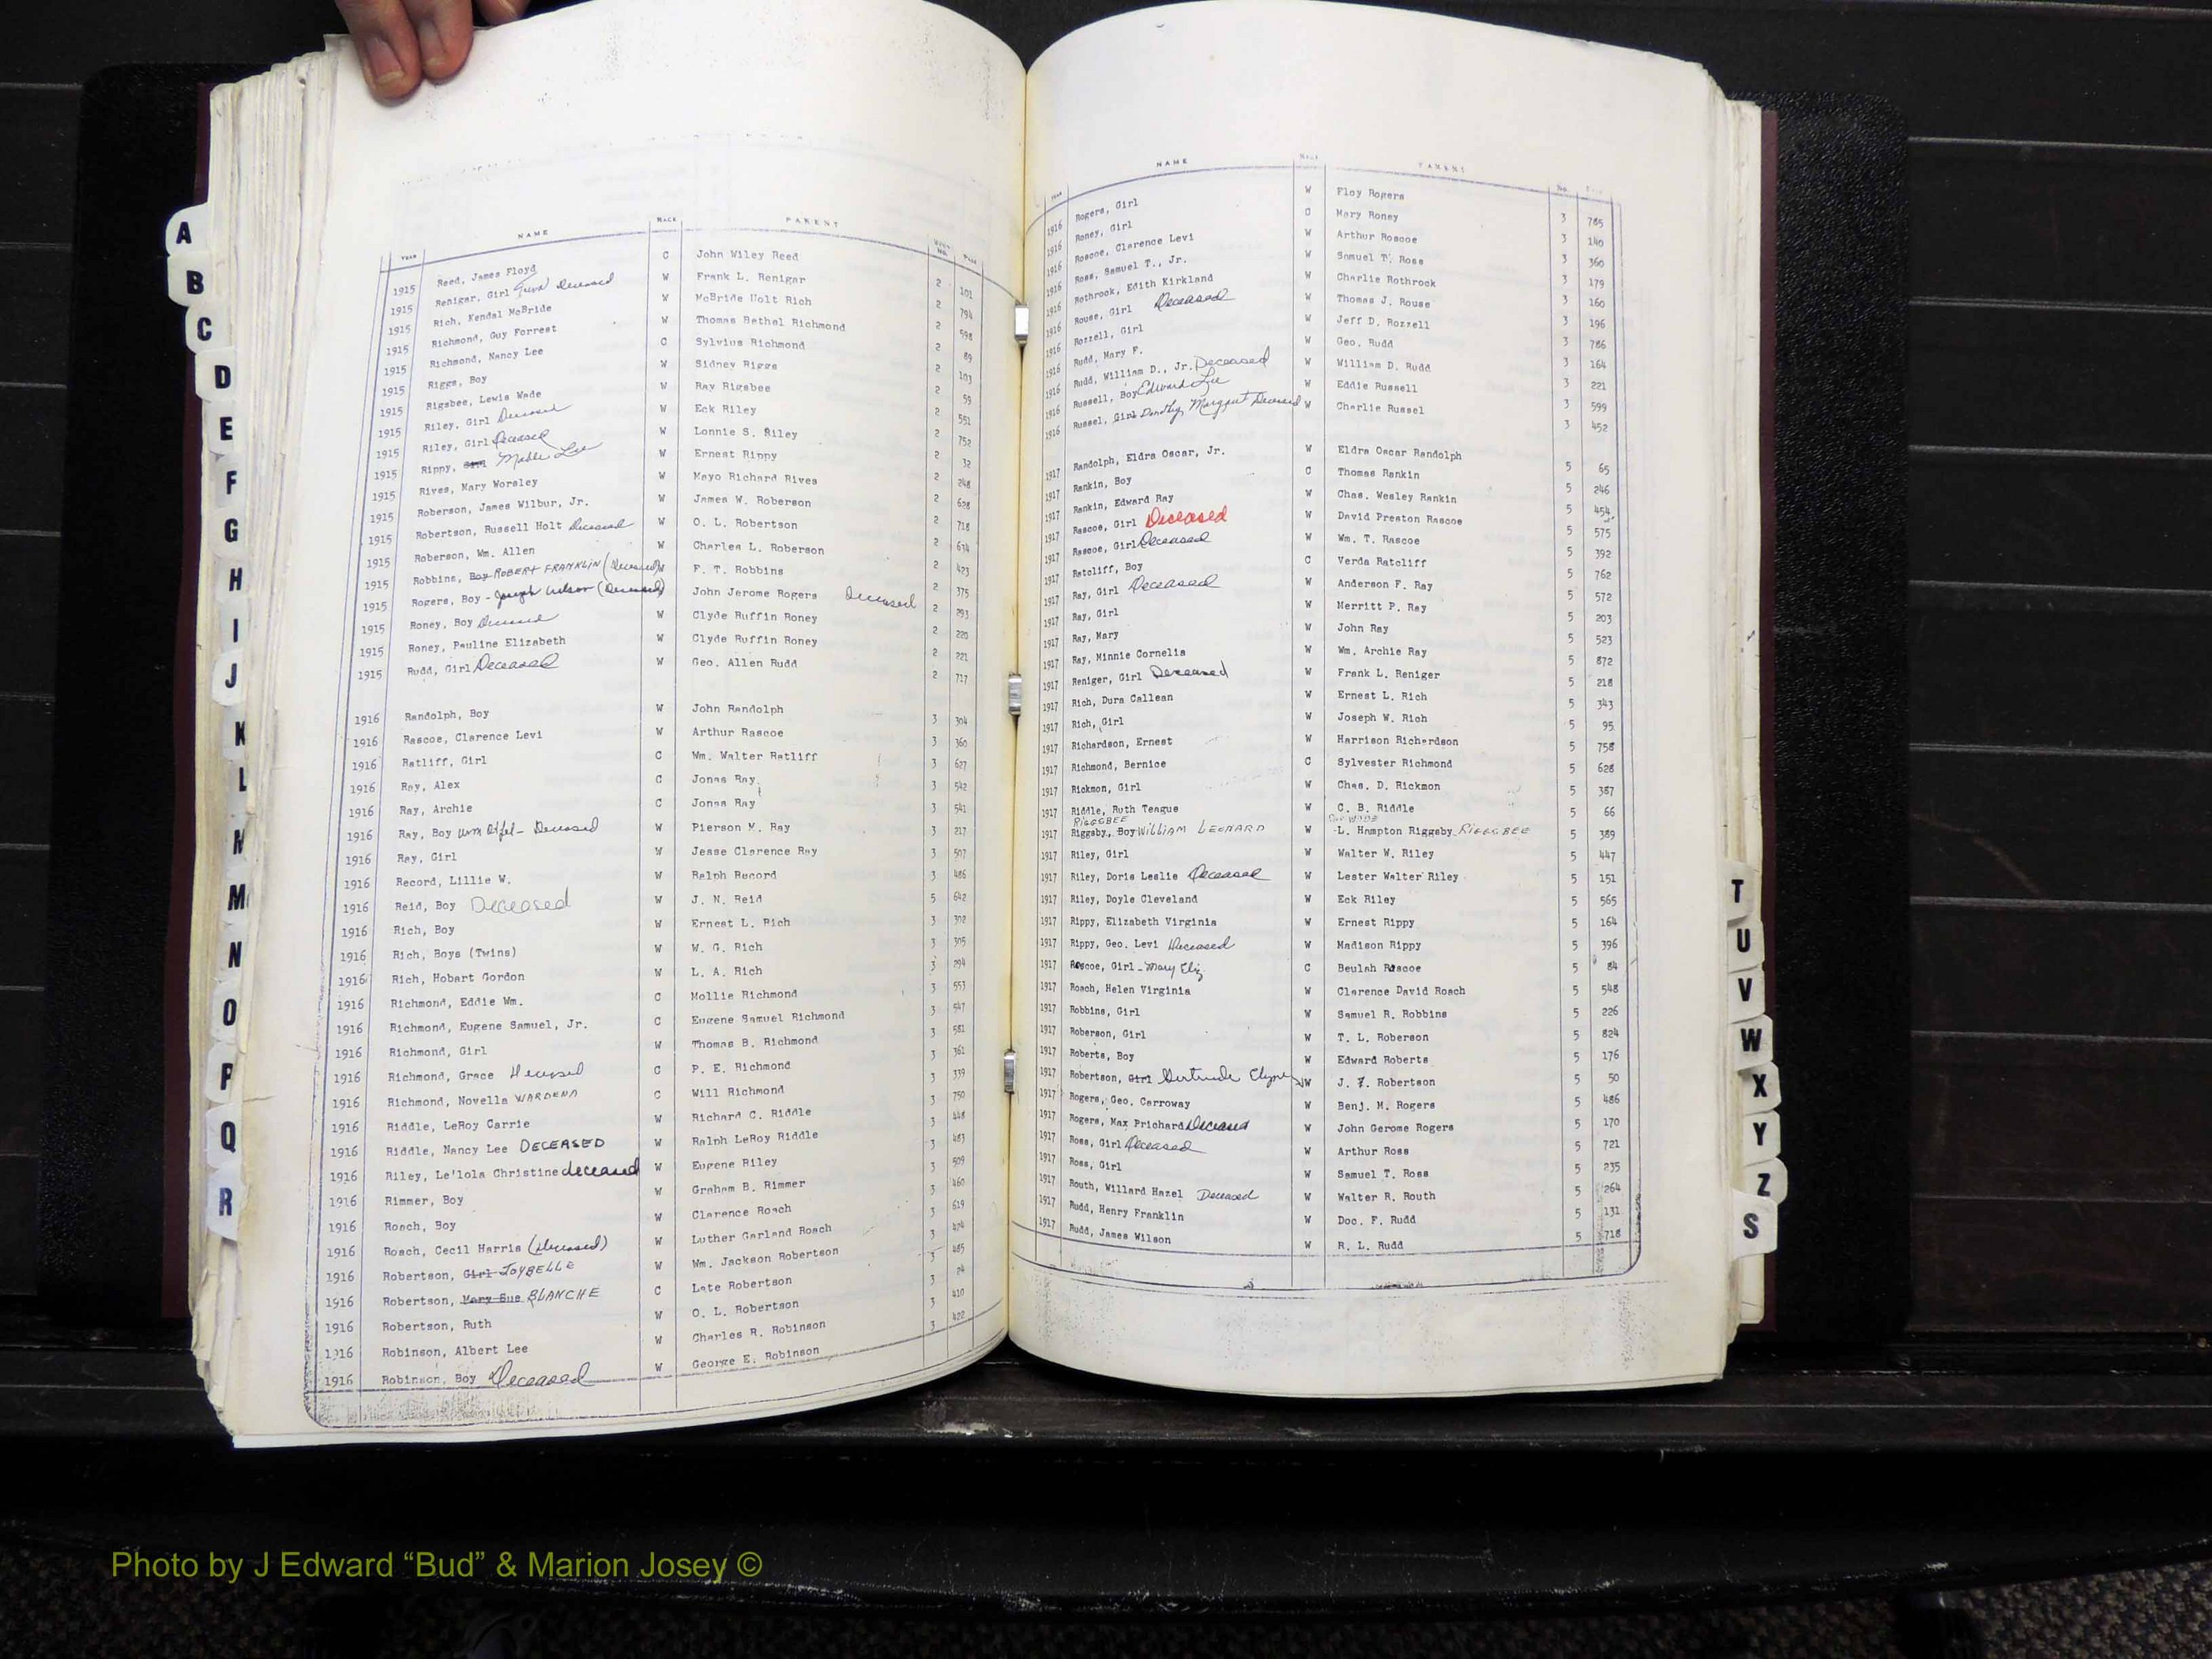 A
B
C
D
E
F
G
H
I
J
K
L
M
N
O
P
Q
R
YEAR NAME RACE PARENT
1915 Reed, James Floyd C John Wiley Reed 2 101
1915 Renigar, Girl Deceased W Frank L. Renigar 2 794
1915 Rich, Kendal McBride W McBride Holt Rich 2 598
1915 Richmond, Guy Forrest W Thomas Bethel Richmond 2 89
1915 Richmond, Nancy Lee C Sylvius Richmond 2 103
1915 Riggs, Boy W Sidney Riggs 2 59
1915 Rigsbee, Lewis Wade W Ray Rigsbee 2 551
1915 Riley, Girl Deceased W Eck Riley 2 752
1915 Riley, Girl Deceased W Lonnie S. Riley 2 32
1915 Rippy, Girl Mable Lee W Ernest Rippy 2 248
1915 Rives, Mary Worsley W Mayo Richard Rives 2 628
1915 Roberson, James Wilbur, Jr. W James W. Roberson 2 718
1915 Robertson, Russell Holt Deceased W O. L. Robertson 2 634
1915 Roberson, Wm. Allen W Charles L. Roberson 2 423
1915 Robbins, Boy ROBERT FRANKLIN (Deceased) W F. T. Robbins 2 375
1915 Rogers, Boy - Joseph Wilson (Deceased) John Jerome Rogers Deceased 2 293
1915 Roney, Boy Deceased W Clyde Ruffin Roney 2 220
1915 Roney, Pauline Elizabeth W Clyde Ruffin Roney 2 221
1915 Rudd, Girl Deceased W Geo. Allen Rudd 2 717
1916 Randolph, Boy W John Randolph 3 304
1916 Rascoe, Clarence Levi W Arthur Rascoe 3 360
1916 Ratliff, Girl C Wm. Walter Ratliff 3 627
1916 Ray, Alex C Jonas Ray 3 542
1916 Ray, Archie C Jonas Ray 3 541
1916 Ray, Boy Wm - Deceased W Pierson M. Ray 3 217
1916 Ray, Girl W Jesse Clarence Ray 3 507
1916 Record, Lillie W. W Ralph Record 3 486
1916 Reid, Boy Deceased W J. N. Reid 5 642
1916 Rich, Boy W Ernest L. Rich 3 302
1916 Rich, Boys (Twins) W W. G. Rich 3 305
1916 Rich, Hobart Gordon W L. A. Rich 3 294
1916 Richmond, Eddie Wm. C Mollie Richmond 3 553
1916 Richmond, Eugene Samuel, Jr. C Eugene Samuel Richmond 3 547
1916 Richmond, Girl W Thomas B. Richmond 3 581
1916 Richmond, Grace Deceased C P. E. Richmond 3 361
1916 Richmond, Novella WARDENA C Will Richmond 3 339
1916 Riddle, LeRoy Carrie W Richard C. Riddle 3 750
1916 Riddle, Nancy Lee DECEASED W Ralph LeRoy Riddle 3 448
1916 Riley, Le'lola Christine deceased W Eugene Riley 3 483
1916 Rimmer, Boy W Graham B. Rimmer 3 509
1916 Roach, Boy W Clarence Roach 3 460
1916 Roach, Cecil Harris (deceased) W Luther Garland Roach 3 619
1916 Robertson, Girl JOYBELLE W Wm. Jackson Robertson 3 424
1916 Robertson, Mary Sue BLANCHE C Late Robertson 3 485
1916 Robertson, Ruth W O. L. Robertson 3 24
1916 Robinson, Albert Lee W Charles R. Robinson 3 410
1916 Robinson, Boy Deceased W George E. Robinson 3 422
YEAR NAME RACE PARENT No.
1916 Rogers, Girl W Floy Rogers 3 785
1916 Roney, Girl C Mary Roney 3 140
1916 Roscoe, Clarence Levi W Arthur Roscoe 3 360
1916 Ross, Samuel T., Jr. W Samuel T. Ross 3 179
1916 Rothrock, Edith Kirkland W Charlie Rothrock 3 160
1916 Rouse, Girl Deceased W Thomas J. Rouse 3 196
1916 Rozzell, Girl W Jeff D. Rozzell 3 786
1916 Rudd, Mary F. W Geo. Rudd 3 164
1916 Rudd, William D., Jr. Deceased W William D. Rudd 3 221
1916 Russell, Boy Edward Lee W Eddie Russell 3 599
1916 Russel, Girl Dorothy Margaret Deceased W Charlie Russel 3 452
1917 Randolph, Eldra Oscar, Jr. W Eldra Oscar Randolph 5 65
1917 Rankin, Boy C Thomas Rankin 5 246
1917 Rankin, Edward Ray W Chas. Wesley Rankin 5 454
1917 Rascoe, Girl Deceased W David Preston Rascoe 5 575
1917 Rascoe, Girl Deceased W Wm. T. Rascoe 5 392
1917 Ratcliff, Boy C Verda Ratcliff 5 762
1917 Ray, Girl Deceased W Anderson F. Ray 5 572
1917 Ray, Girl W Merritt P. Ray 5 203
1917 Ray, Mary W John Ray 5 523
1917 Ray, Minnie Cornelia W Wm. Archie Ray 5 872
1917 Reniger, Girl Deceased W Frank L. Reniger 5 218
1917 Rich, Dura Callean W Ernest L. Rich 5 343
1917 Rich, Girl W Joseph W. Rich 5 95
1917 Richardson, Ernest W Harrison Richardson 5 758
1917 Richmond, Bernice C Sylvester Richmond 5 628
1917 Rickmon, Girl W Chas. D. Rickmon 5 387
1917 Riddle, Ruth Teague W C. B. Riddle 5 66
RIGGSBEE
1917 Riggsby, Boy WILLIAM LEONARD W L. Hampton Riggsby RIGGSBEE 5 389
1917 Riley, Girl W Walter W. Riley 5 447
1917 Riley, Doris Leslie Deceased W Lester Walter Riley 5 151
1917 Riley, Doyle Cleveland W Eck Riley 5 565
1917 Rippy, Elizabeth Virginia W Ernest Rippy 5 164
1917 Rippy, Geo. Levi Deceased W Madison Rippy 5 396
1917 Roscoe, Girl - Mary Eliz C Beulah Rascoe 5 84
1917 Roach, Helen Virginia W Clarence David Roach 5 548
1917 Robbins, Girl W Samuel R. Robbins 5 226
1917 Roberson, Girl W T. L. Roberson 5 824
1917 Roberts, Boy W Edward Roberts 5 176
1917 Robertson, Girl Gertrude W J. F. Robertson 5 50
1917 Rogers, Geo. Carroway W Benj. M. Rogers 5 486
1917 Rogers, Max Prichard Deceased W John Gerome Rogers 5 170
1917 Ross, Girl Deceased W Arthur Ross 5 721
1917 Ross, Girl W Samuel T. Ross 5 235
1917 Routh, Willard Hazel Deceased W Walter R. Routh 5 264
1917 Rudd, Henry Franklin W Doc. F. Rudd 5 131
1917 Rudd, James Wilson W R. L. Rudd 5 718
T
U
V
W
X
Y
Z
S
Photo by J Edward “Bud” & Marion Josey ©